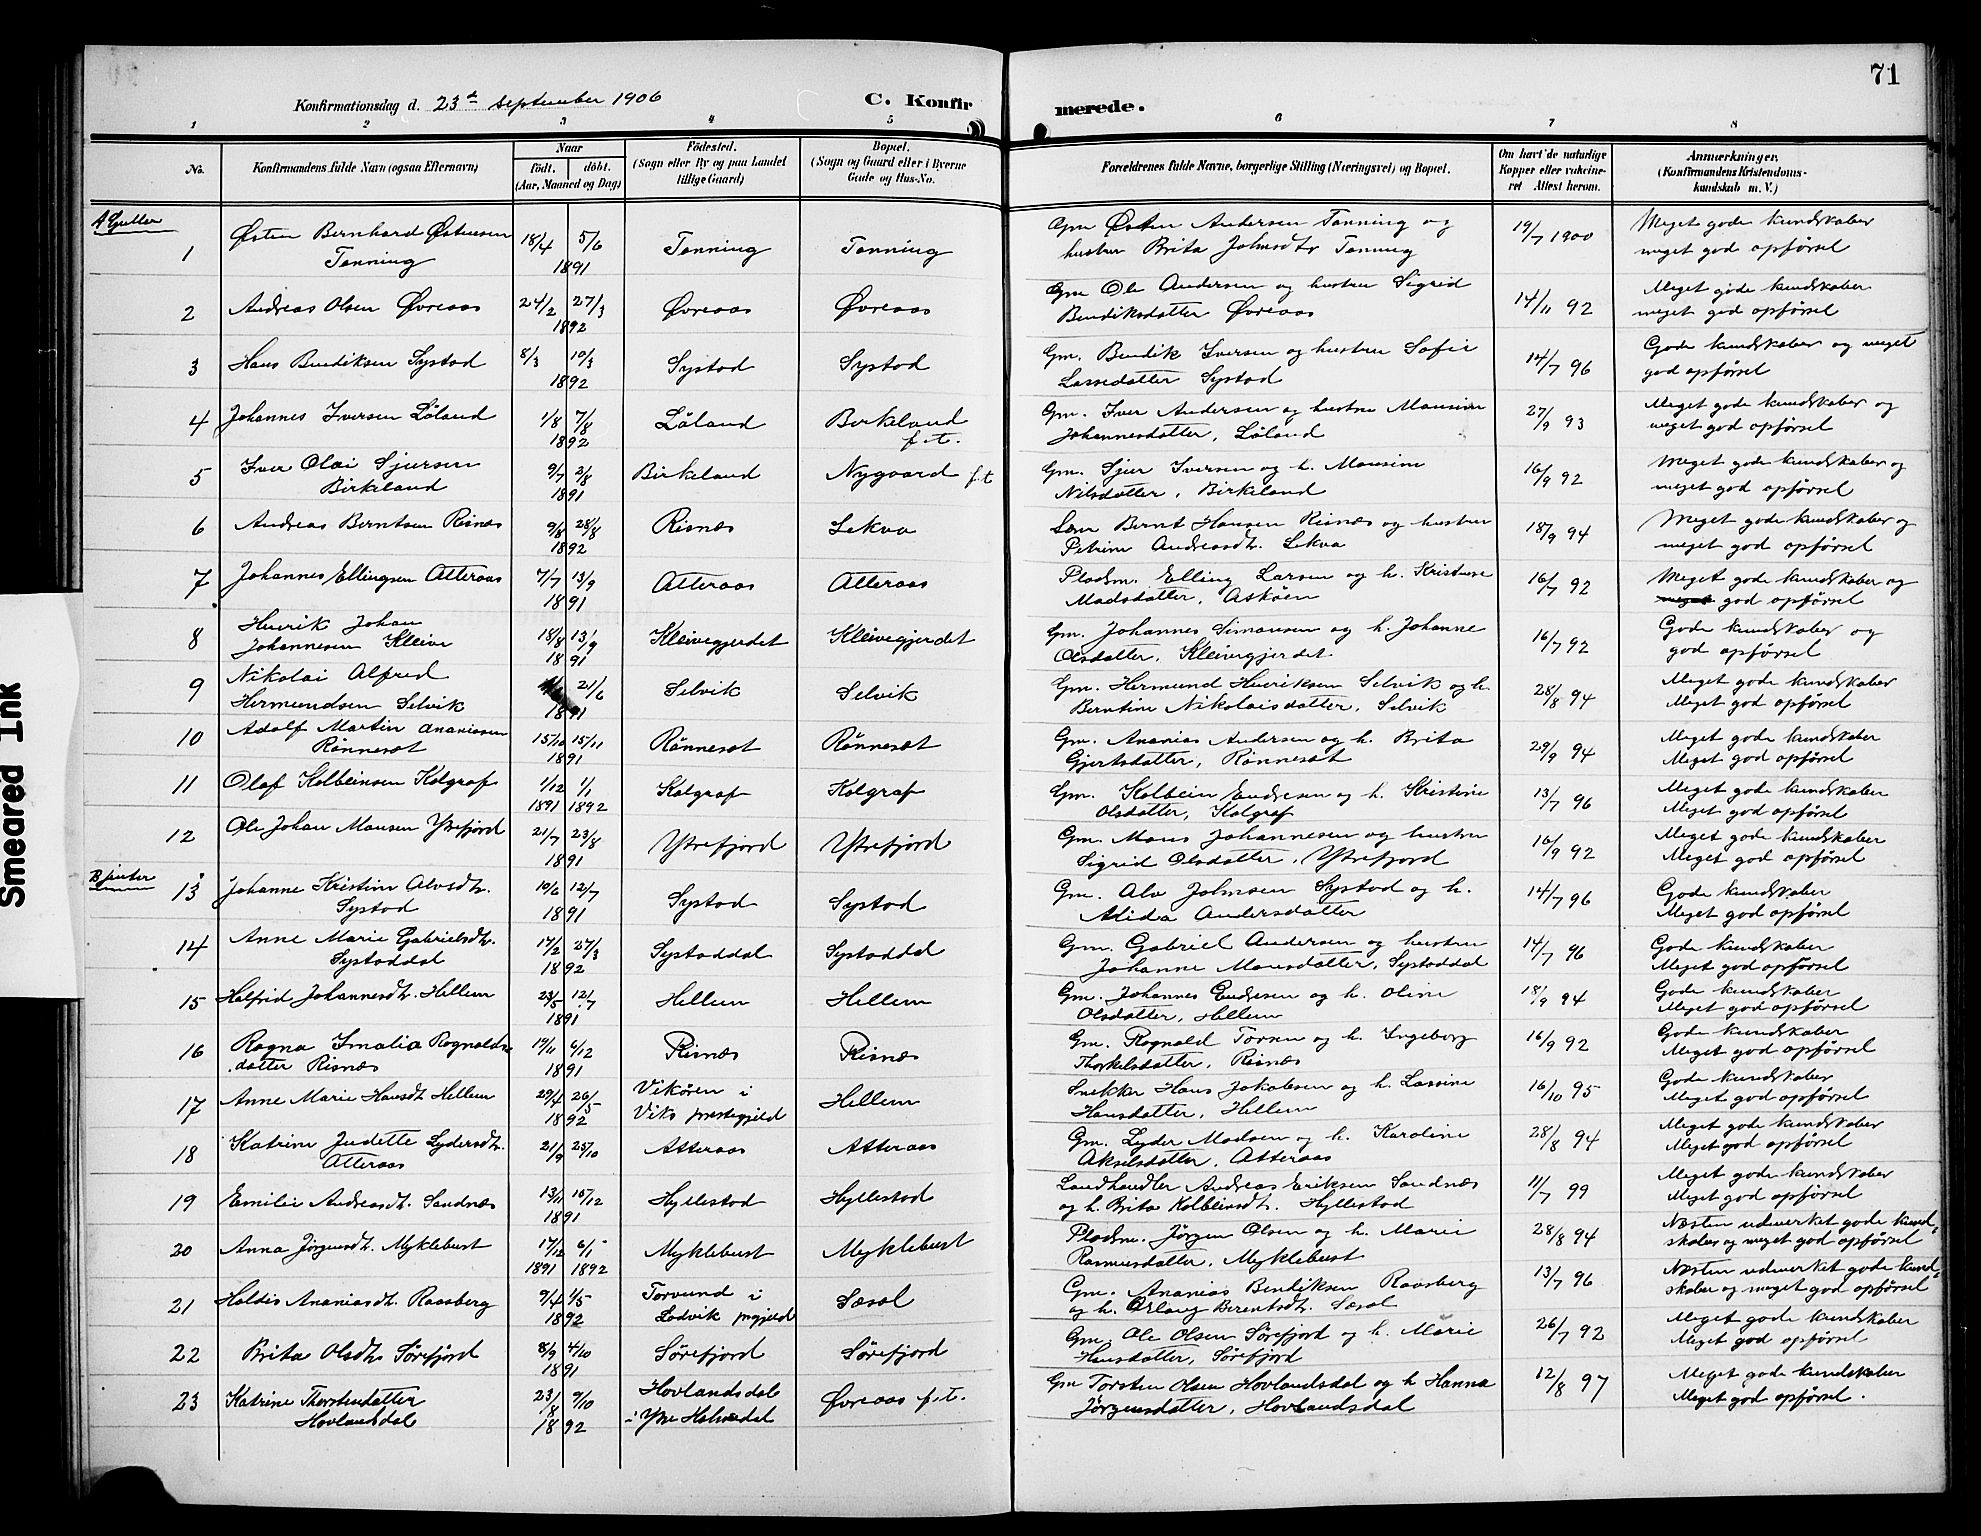 71
Konfirmationsdag d. 23de september 1906
C. Konfir
merede.
1 2 3 4 5 6 7 8
No.
Konfirmandens fulde Navn (ogsaa Efternavn)
Naar
födt. döbt.
(Aar, Maaned og Dag)
Födested.
(Sogn eller By og paa Landet
tillige Gaard)
Bopæl.
(Sogn og Gaard eller i Byerne
Gade og Hus-No.
Forældrenes fulde Navne, borgerlige Stilling (Næringsvei) og Bopæl.
Om havt de naturlige
Kopper eller vakcine-
ret Attest herom.
Anmærkninger.
(Konfirmandens Kristendoms-
kundskab m. V.)
A Gutter
1 Østen Bernhard Østensen Tonning 18/4 5/6 1891 Tonning Tonning Gm Østen Andersen Tonning og
hustru Brita Johnsdtr Tonning 19/7 1900 Meget gode kundskaber
meget god opførsel
2 Andreas Olsen Øvreaas 24/2 27/3 1892 Øvreaas Øvreaas Gm Ole Andersen og hustru Sigrid
Bendiksdatter Øvreaas 14/11 92 Meget gode kundskaber
meget god opførsel
3 Hans Bendiksen Systad 8/3 10/3 1892 Systad Systad Gm. Bendik Iversen og hustru Sofie
Lassedatter Systad 14/7 96 Gode kundskaber og meget
god opførsel
4 Johannes Iversen Løland 1/8 7/8 1892 Løland Birkeland f.t. Gm. Iver Andersen og hustru Monsine
Johannesdatter, Løland 27/9 93 Meget gode kundskaber og
meget god opførsel
5 Iver Olai Sjursen Birkeland 9/7 2/8 1891 Birkeland Nygaard f.t Gm. Sjur Iversen og h. Monsine
Nilsdatter, Birkeland 16/9 92 Meget gode kundskaber og
meget god opførsel
6 Andreas Berntsen Risnæs 9/8 28/8 1892 Risnæs Lekva Løsm Bernt Hansen Risnæs og hustru
Petrine Andreasdt. Lekva 18/9 94 Meget gode kundskaber og
meget god opførsel
7 Johannes Ellingsen Atteraas 7/7 13/9 1891 Atteraas Atteraas Pladsm. Elling Larsen og h. Kristine
Madsdatter, Askøen 16/7 92 Meget gode kundskaber og
god opførsel
8 Henrik Johan Johannesen Kleive 18/8 13/9 1891 Kleivegjerdet Kleivegjerdet Gm. Johannes Simonsen og h. Johanne
Olsdatter. Kleivegjerdet 16/7 92 Gode kundskaber og
god opførsel
9 Nikolai Alfred Hermundsen Selvik 21/6 1891 Selvik Selvik Gm. Hermund Henriksen Selvik og h.
Berntine Nikolaisdatter, Selvik 28/8 94 Meget gode kundskaber
Meget god opførsel
10 Adolf Martin Ananiassen Rønneset 15/10 15/11 1891 Rønnesæt Rønnesæt Gm. Ananias Andersen og h. Brita
Gjertsdatter, Rønnesæt 29/9 94 Meget gode kundskaber
Meget god opførsel
11 Olaf Kolbeinsen Kolgraf 1/12 1891 1/1 1892 Kolgraf Kolgraf Gm. Kolbein Endresen og h. Kristine
Olsdatter, Kolgraf 13/7 96 Meget gode kundskaber
Meget god opførsel
12 Ole Johan Monsen Ytrefjord 21/7 23/8 1891 Ytrefjord Ytrefjord Gm. Mons Johannesen og hustru
Sigrid Olsdatter, Ytrefjord 16/9 92 Meget gode kundskaber
Meget god opførsel
B jenter
13 Johanne Kristine Alvsdt. Systad 10/6 12/7 1891 Systad Systad Gm. Alv Johnsen Systad og h.
Alida Andersdatter 14/7 96 Gode kundskaber
Meget god opførsel
14 Anne Marie Gabrielsdt. Systaddal 17/2 27/3 1892 Systaddal Systaddal Gm. Gabriel Andersen og hustru
Johanne Monsdatter, Systaddal 14/7 96 Gode kundskaber
Meget god opførsel
15 Halfrid Johannesdt. Hellem 23/5 12/7 1891 Hellem Hellem Gm. Johannes Endresen og h. Oline
Olsdatter, Hellem 18/9 94 Gode kundskaber
Meget god opførsel
16 Ragna Amalia Ragnaldsdatter Risnæs 19/11 6/12 1891 Risnæs Risnæs Gm. Ragnald Torsen og h. Ingeborg
Thorkelsdatter, Risnæs 16/9 92 Gode kundskaber
Meget god opførsel
17 Anne Marie Hansdt Hellem 29/4 26/5 1892 Vikøren i Viks prestegjeld Hellem Snekker Hans Jakobsen og h. Lassine
Hansdatter, Hellem 16/10 95 Gode kundskaber
Meget god opførsel
18 Katrine Judette Lydersdt. Atteraas 21/9 25/10 Atteraas Atteraas Gm. Lyder Madsen og h. Karoline
Akselsdatter, Atteraas 28/8 94 Meget gode kundskaber
Meget god opførsel
19 Emilie Andreasdt. Sandnæs 13/11 16/12 1891 Hyllestad Hyllestad Landhandler Andreas Eriksen Sandnæs
og h. Brita Kolbeinsdt. Hyllestad 11/7 99 Meget gode kundskaber
Meget god opførsel
20 Anna Jørgensdt. Myklebust 17/12 1891 6/1 1892 Myklebust Myklebust Pladsm. Jørgen Olsen og h. Marie
Rasmusdatter, Myklebust 28/8 94 Næsten udmerket gode kund-
skaber og meget god opførsel
21 Haldis Ananiasdt. Raasberg 9/4 1/5 1892 Torvund i Ladvik prgjeld Sæsol Gm. Ananias Bendiksen Raasberg
og h. Erlaug Berentsdt. Sæsol 13/7 96 Næsten udmerket gode kund-
skaber og meget god opførsel
22 Brita Olsdtr Sørefjord 8/9 4/10 1891 Sørefjord Sørefjord Gm. Ole Olsen Sørefjord og h. Marie
Hansdatter, Sørefjord 26/7 92 Meget gode kundskaber
Meget god opførsel
23 Katrine Thorstendatter Hovlandsdal 23/8 9/10 1892 Hovlandsdal i Ytre Holmedal Øvreaas f.t. Gm Torsten Olsen Hovlandsdal og h Hanna
Jørgensdatter, Hovlandsdal 12/8 97 Meget gode kundskaber
Meget god opførsel.
Smeared Ink